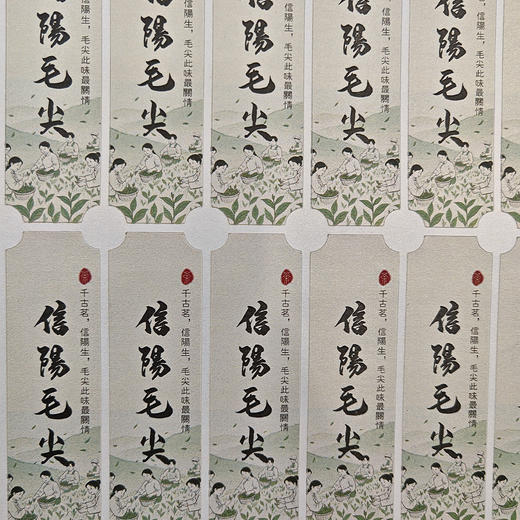 信陽毛尖
信陽生，毛尖此味最關情
信陽毛尖
信陽生，毛尖此味最關情
信陽毛尖
陽生，毛尖此味最關情
信陽毛尖
生，毛尖此味最關情
信陽毛尖
生，毛尖此味最關情
信陽毛尖
千古茗，信陽生，毛尖此味最關情
信陽毛尖
千古茗，信陽生，毛尖此味最關情
信陽毛尖
千古茗，信陽生，毛尖此味最關情
信陽毛尖
千古茗，信陽生，毛尖此味最關情
信陽毛尖
千古茗，信陽生，毛尖此味最關情